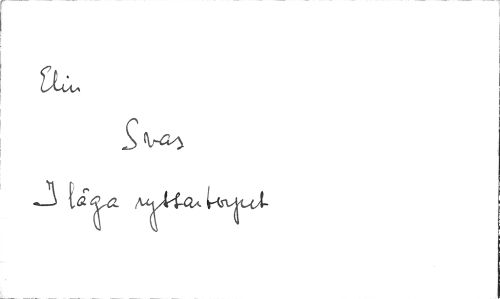 Elin
Svas
I låga ryttartorpet